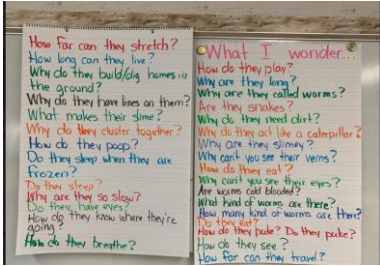 How far can they stretch?
How long can they live?
Why do they build/dig homes in
the ground?
Why do they have lines on them?
What makes their slime?
Why do they cluster together?
How do they poop?
Do they sleep when they are
frozen?
Do they sleep?
Why are they so slow?
Do they have eyes?
How do they know where they're
going?
How do they breathe?
What I wonder...
How do they play?
Why are they long?
Why are they called worms?
Are they snakes?
Why do they need dirt?
Why do they act like a caterpillar?
Why are they slimey?
Why can't you see their veins?
How do they eat?
Why can't you see their eyes?
Are worms cold blooded?
What kind of worms are there?
How many kind of worms are there?
Do they eat?
How do they puke? Do they puke?
How do they see?
How far can they travel?